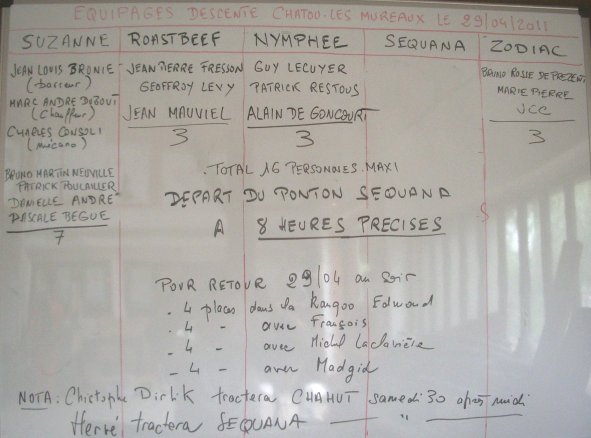 EQUIPAGES DESCENTE CHATOU-LES MUREAUX LE 29/04/2011
SUZANNE
JEAN LOUIS BRONIE
(barreur)
MARC ANDRE DUBOUT
(Chauffeur)
CHARLES CONSOLI
(mécano)
BRUNO MARTIN NEUVILLE
PATRICK POULAILLER
DANIELLE ANDRÉ
PASCALE BEGUE
7
ROASTBEEF
JEAN PIERRE FRESSON
GEOFFROY LEVY
JEAN MAUVIEL
3
NYMPHEE
GUY LECUYER
PATRICK RESTOUS
ALAIN DE GONCOURT
3
SEQUANA
ZODIAC
BRUNO ROSIE DE PREZENT
MARIE PIERRE
JCC
3
. TOTAL 16 PERSONNES. MAXI
DEPART DU PONTON SEQUANA
A 8 HEURES PRECISES
POUR RETOUR 29/04 au soir
. 4 places dans la Kangoo Edmond
. 4 - avec François
- 4 - avec Michel Laclavière
- 4 - avec Madgid
NOTA: Christophe Dirlik tractera CHAHUT samedi 30 après midi
Hervé tractera SEQUANA — " —